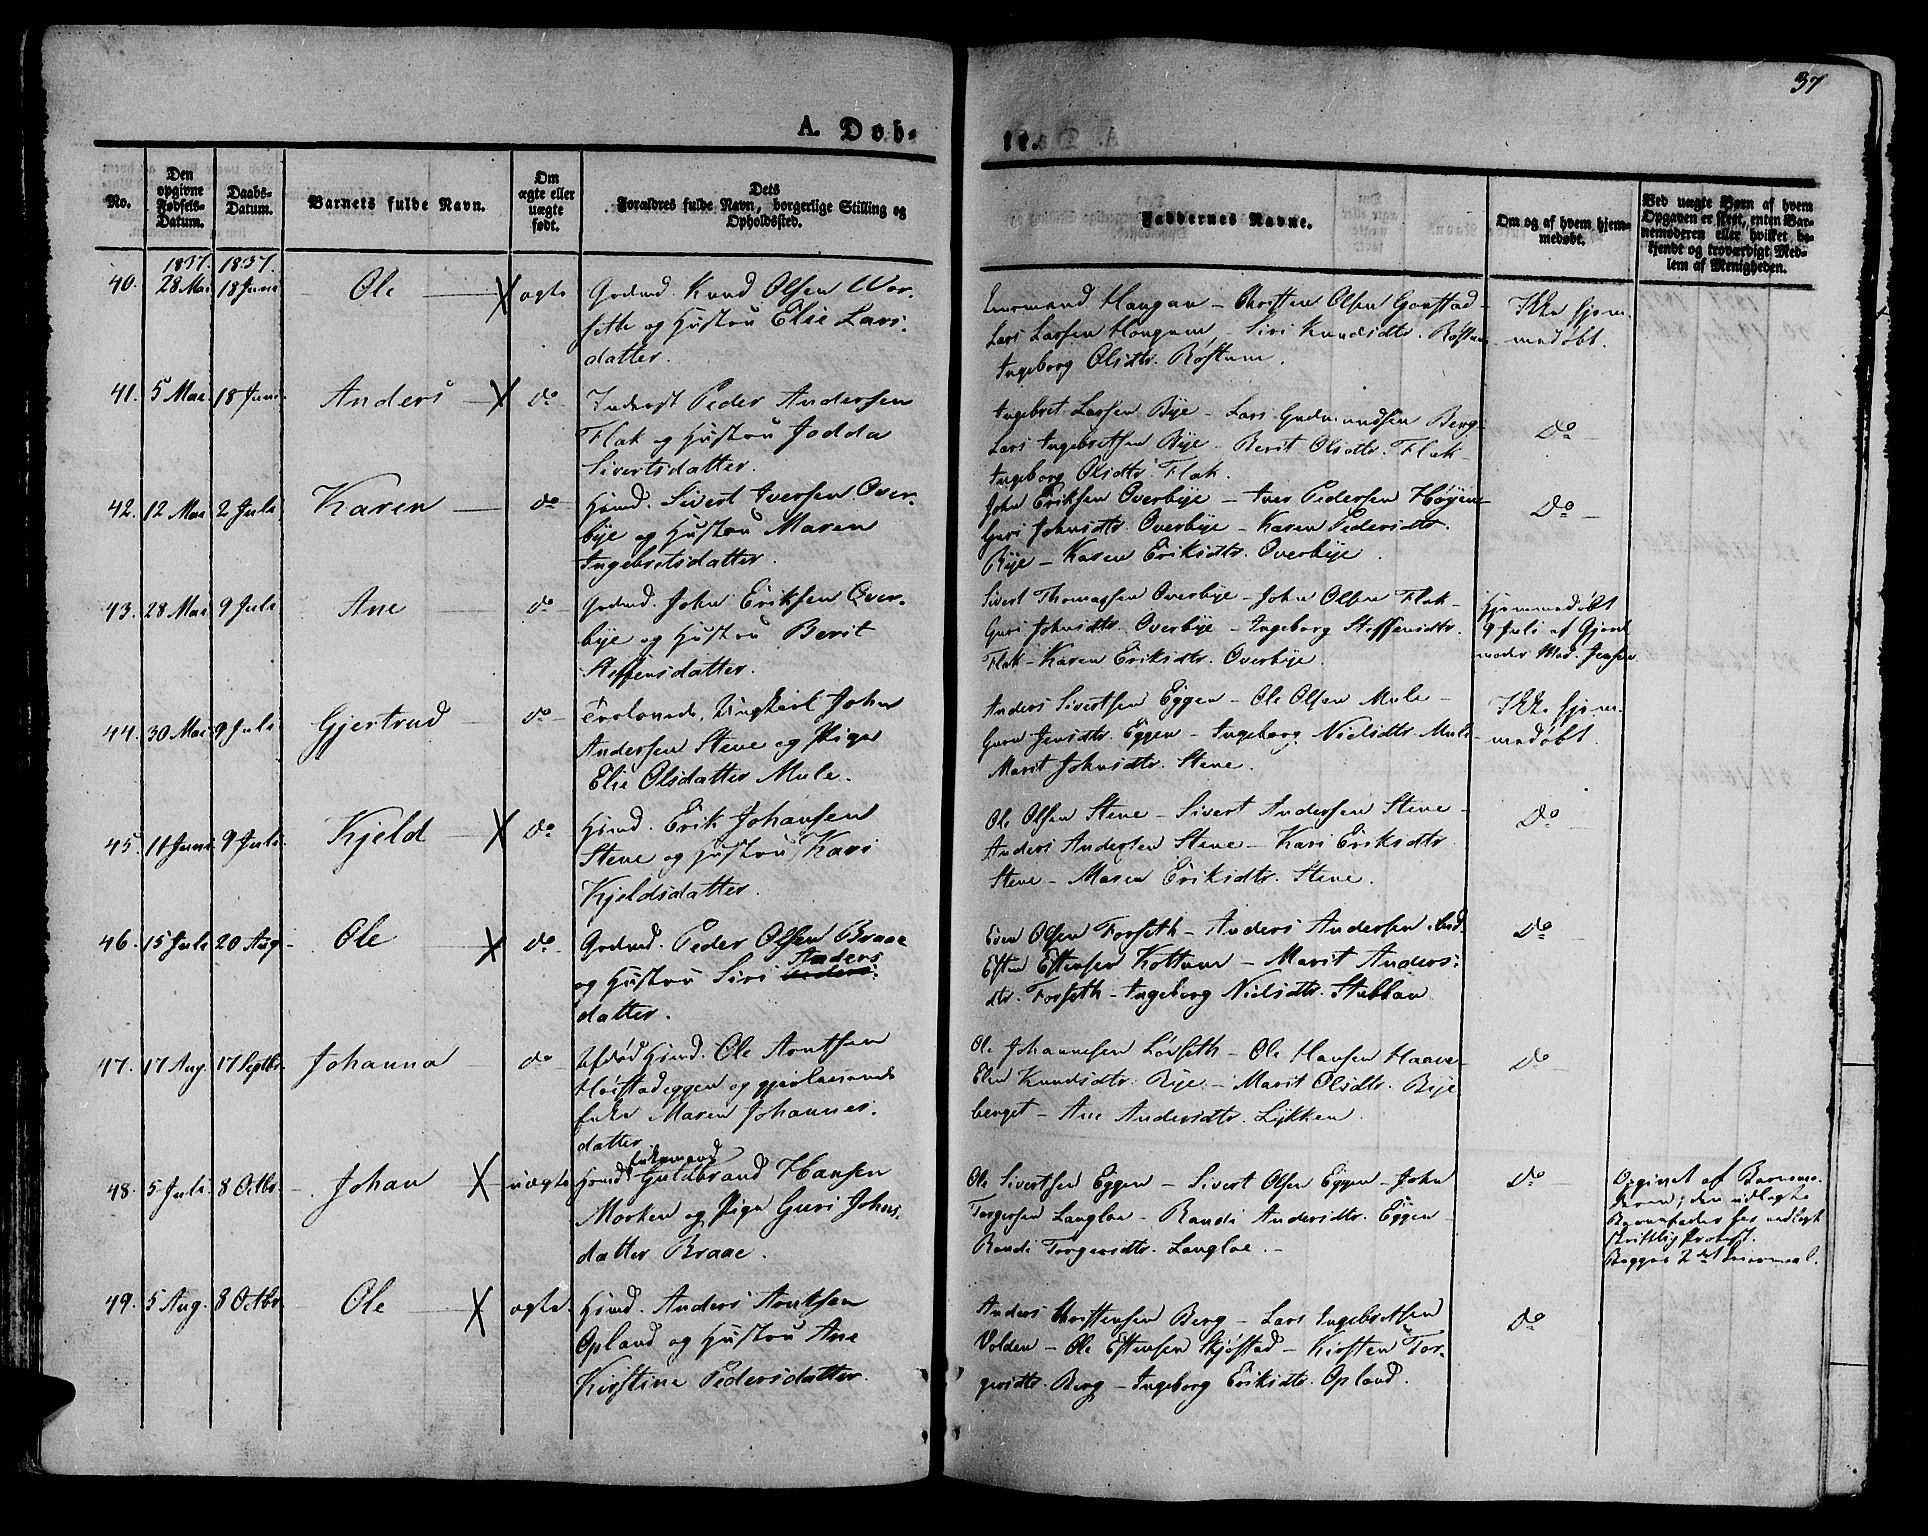 37
A. Døb-
te.
No.
Den opgivne Fødsels-Datum.
Daabs-Datum.
Barnets fulde Navn.
Om ægte eller uægte født.
Dets Forældres fulde Navn, borgerlige Stilling og Opholdssted.
Faddernes Navne.
Om og af hvem hjemmedøbt.
Ved uægte Børn af hvem Opgaven er skeet, enten Barnemoderen eller hvilket bekjendt og troværdigt Medlem af Menigheden.
1837. 1837.
40. 28 Mai 18 Juni Ole X ægte Gaardmd. Knud Olsen Wor-
sette og Hustru Elie Lars-
datter.
Haugan - Christen Olsen Gaustad -
Lars Larsen Haugum - Siri Knudsdtr. Røstum
Ingeborg Olsdtr. Røstum.
Ikke hjem-
medøbt.
41. 5 Mai 18 Juni Anders X do Inderst Peder Andersen
Flak og Hustru Jodda
Sivertsdatter.
Ingebret Larsen Bye - Lars Gudmundsen Berg -
Lars Ingebretsen Bye - Berit Olsdtr. Flak -
Ingeborg Olsdtr. Flak.
do
42. 12 Mai 2 Juli Karen do Huusmd. Sivert Iversen Over-
bye og Hustru Maren
Ingebretsdatter.
John Eriksen Overbye - Iver Pedersen Høyem
Guri Johnsdtr. Overbye - Karen Pedersdtr.
Bye - Karen Eriksdtr. Overbye.
do
43. 28 Mai 9 Juli Ane do Gaardmd. John Eriksen Over-
bye og Hustru Berit
Steffensdatter.
Sivert Thomassen Overbye - John Olsen Flak -
Guri Johnsdtr. Overbye - Ingeborg Steffensdtr.
Flak - Karen Eriksdtr. Overbye.
Hjemmedøbt
9 Juli af Gjord-
moder Mad. Jensen
44. 30 Mai 9 Juli Gjertrud do Trolovede, Ungkarl John
Andersen Stene og Pige
Elie Olsdatter Mule.
Anders Sivertsen Eggen - Ole Olsen Mule -
Guru Jensdtr. Eggen - Ingeborg Nielsdtr. Mule -
Marit Johnsdtr. Stene.
Ikke hjem-
medøbt.
45. 11 Juni 9 Juli Kjeld X do Huusmd. Erik Johansen
Stene og Hustru Kari
Kjeldsdatter.
Ole Olsen Stene - Sivert Andersen Stene -
Anders Andersen Stene - Kari Eriksdtr.
Stene - Maren Eriksdtr. Stene.
do
46. 15 Juli 20 Aug. Ole X do Gaardmd. Peder Olsen Braae
og Hustru Siri Anders
datter.
Even Olsen Forseth - Anders Andersen ibid.
Esten Estensen Kottum - Marit Anders-
dtr. Forseth - Ingeborg Nielsdtr. Stubban
do
47. 17 Aug. 17 Septbr. Johanna do Afdød Huusmd. Ole Arntsen
Høistadeggen og gjenlevende
Enke Maren Johannes-
datter.
Ole Johannesen Løvseth - Ole Hansen Haave -
Elen Knudsdtr. Bye - Marit Olsdtr. Bye
berget - Ane Andersdtr. Lykken.
do
48. 5 Juli 8 Octbr. Johan X uægte Enkemand
Huusmd Guldbrand Hansen
Morken og Pige Guri Johns-
datter Braae.
Ole Sivertsen Eggen - Sivert Olsen Eggen - John
Torgersen Langloe - Randi Andersdtr. Eggen -
Randi Torgersdtr. Langloe.
do
Opgivet af Barnemo-
deren; den udlagte
Barnefader har nedlagt
skriftlig Protest.
Begges 2det Leiermaal.
49. 5 Aug. 8 Octbr. Ole X ægte Huusmd. Anders Arntsen
Opland og Hustru Ane
Kirstine Pedersdatter.
Anders Christensen Berg - Lars Ingebretsen
Volden - Ole Estensen Skjøstad - Kirsten Tor-
gersdtr. Berg - Ingeborg Eriksdtr. Opland.
do